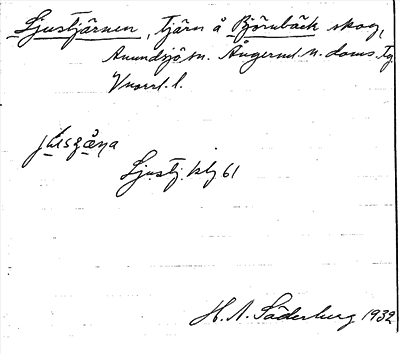 Ljustjärnen, tjärn å Björnbäck skog,
Anundsjö sn. Ångerml. n. doms. Tg
Vnorrl. l.
Ljustj. blg 61
H. A. Söderberg 1932